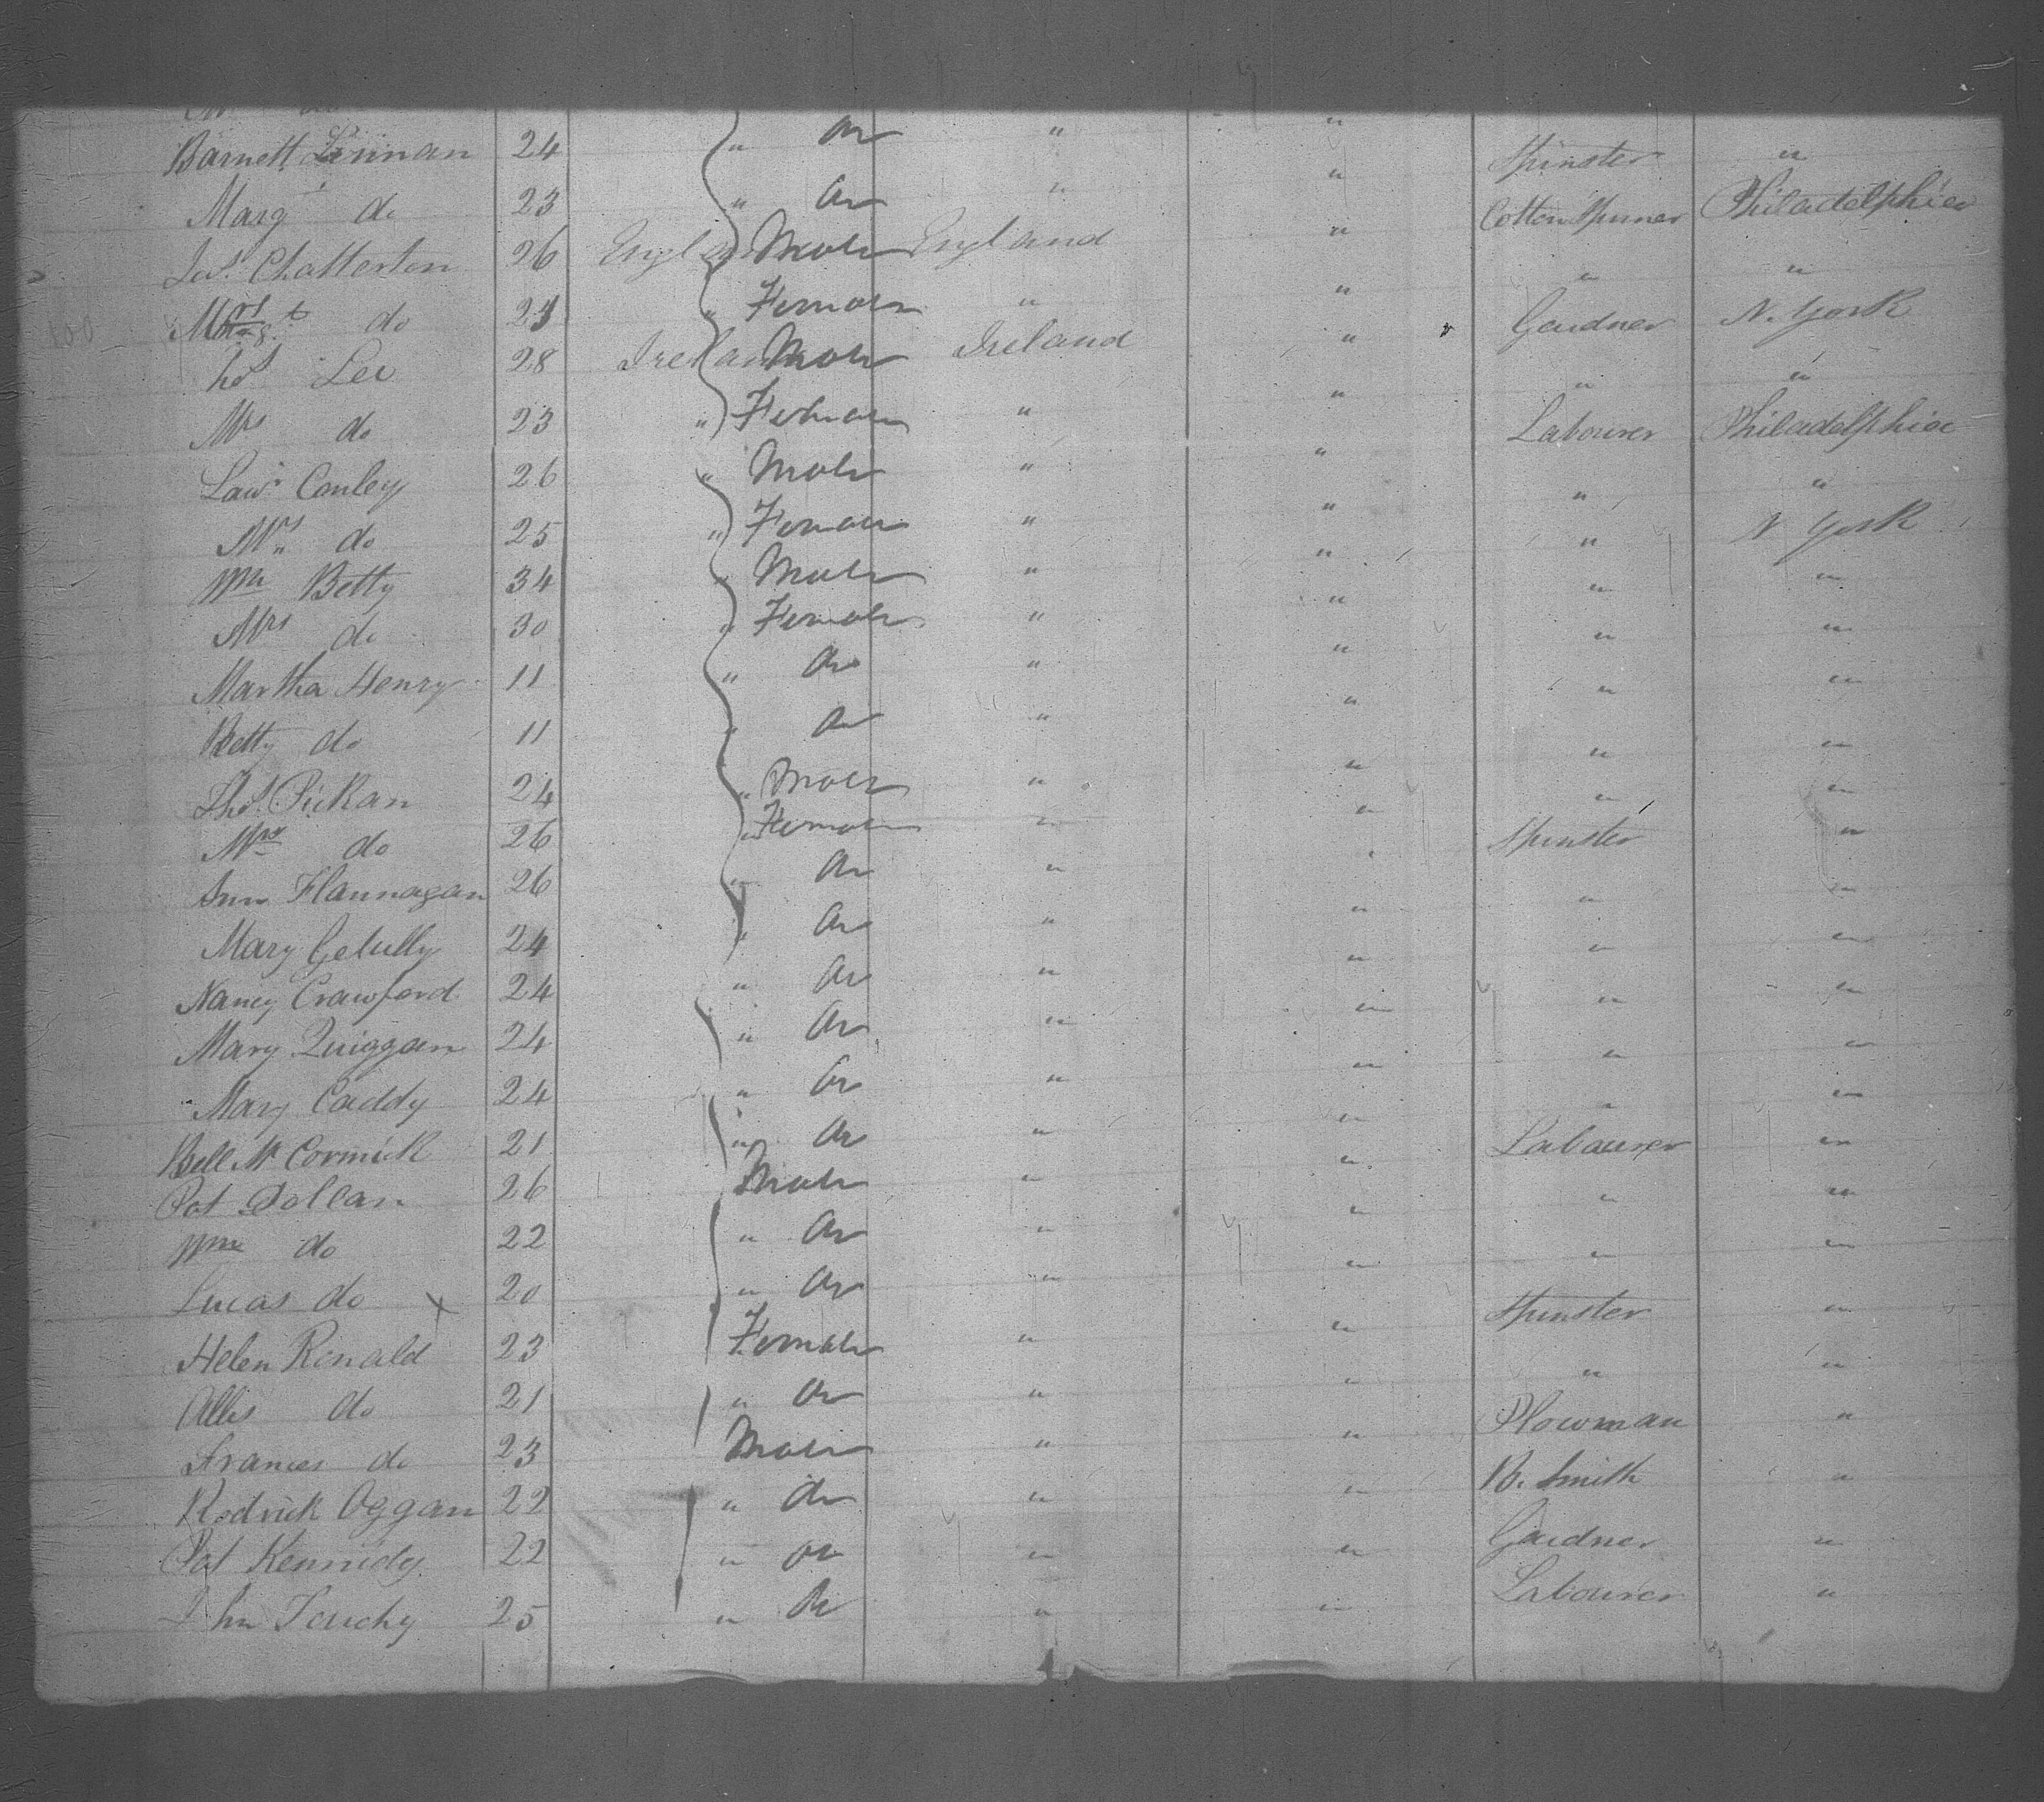 Barnett Linnan 24 " do " " Spinster "
Marg.t do 23 " do " " Cotton Spinner Philadelphia
Jos. Chatterton 26 England Male England " " "
Mrs do 23 " Female " " Gardner N. York
Thos Lee 28 Ireland Male Ireland " " "
Mrs do 23 " Female " " Labourer Philadelphia
Law. Conley 26 " Male " " " "
Mrs do 25 " Female " " " N York
Wm Betty 34 " Male " " " "
Mrs do 30 " Female " " " "
Martha Henry 11 " do " " " "
Betty do 11 " do " " " "
Thos. Pickan 24 " Male " " " "
Mrs do 26 " Female " " Spinster "
Ann Flannagan 26 " do " " " "
Mary 24 " do " " " "
Nancy Crawford 24 " do " " " "
Mary Quiggan 24 " do " " " "
Mary Caddy 24 " do " " " "
Bell Mc Cormick 21 " do " " Labourer "
Pat Dollan 26 Male " " " "
Wm do 22 " do " " " "
Lucas do x 20 " do " " Spinster "
Helen Ronald 23 Female " " " "
Alles do 21 " do " " Plowman "
Frances do 23 Male " " B. Smith "
Rodrick Oggan 22 " do " " Gardner "
Pat Kennidy 22 " do " " Labourer "
John Touchy 25 " do " "